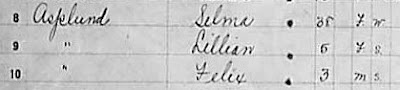 8 Asplund Selma 38 F w
9 " Lillian 5 F s
10 " Felix 3 m s